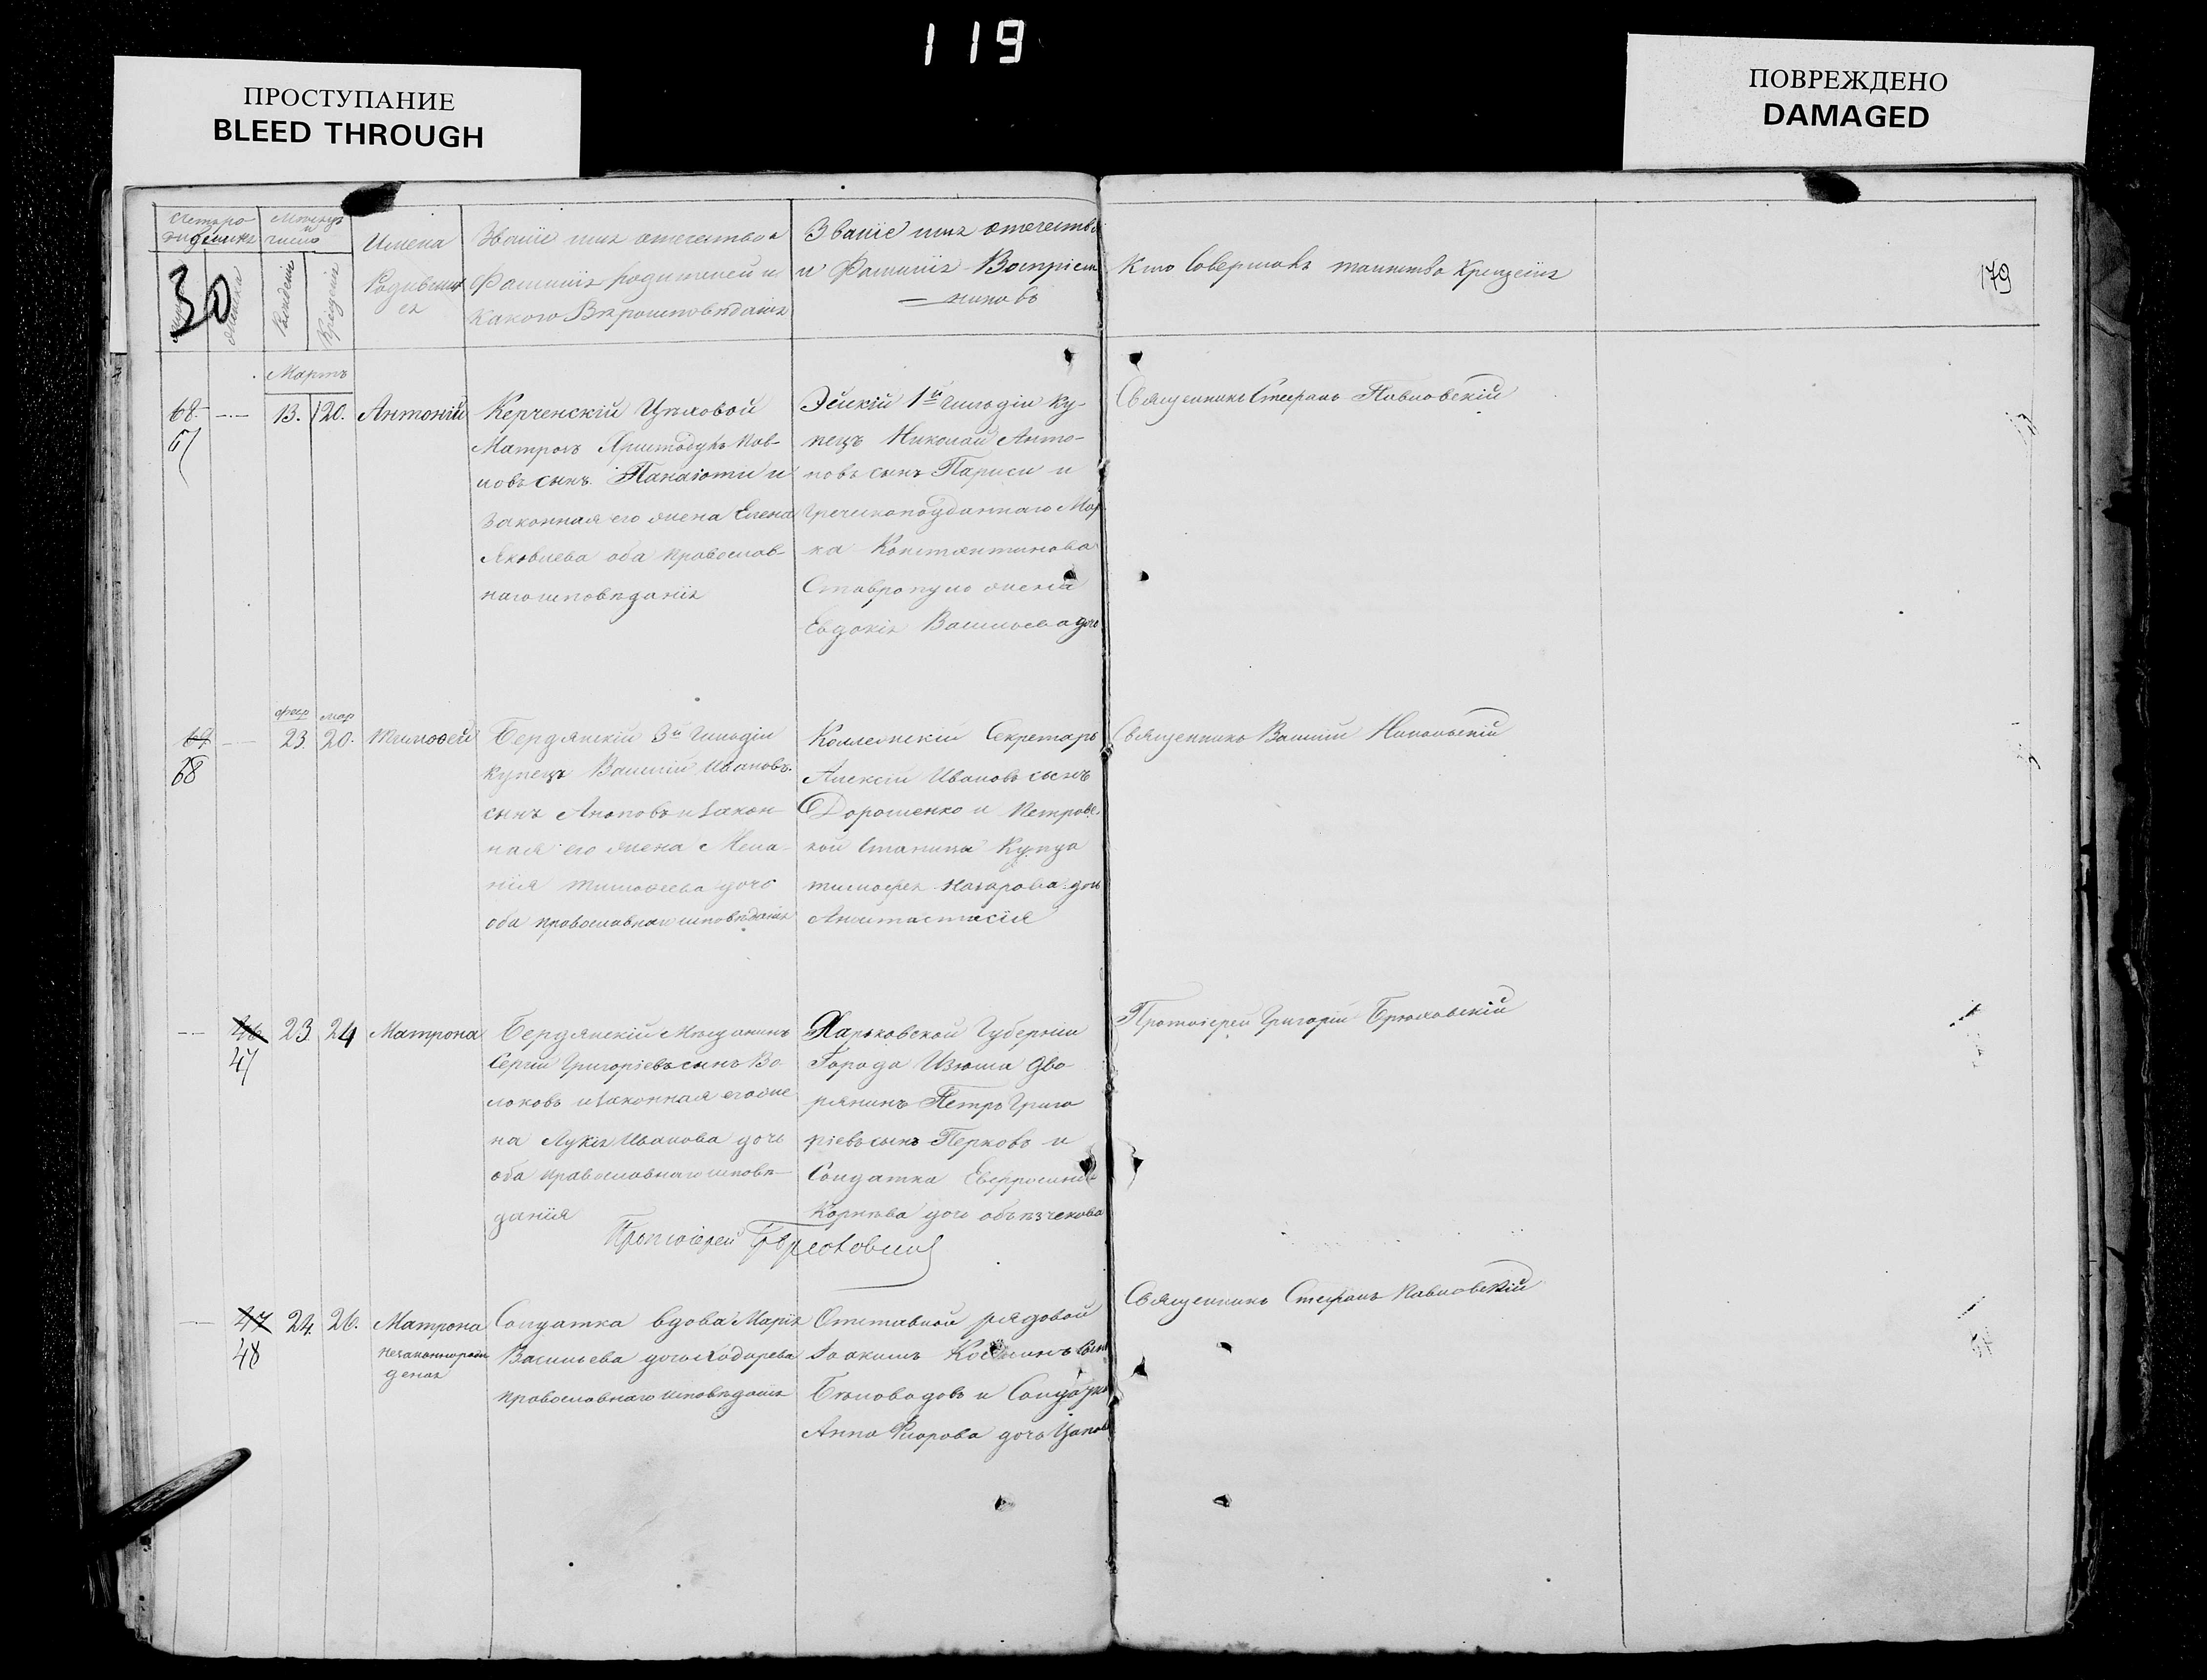 119
ПРОСТУПАНИЕ
BLEED THROUGH
ПОВРЕЖДЕНО
DAMAGED
Имена
Родивших
ся
Званіе имя отечество и
Фамилія родителей и
Какого Вѣроисповѣданія
Званіе имя отечество
и Фамилія Воспріем
никовъ
Кто Совершалъ таинство Крещенія
30
179
Мартъ
68. 13. 20. Антоній
67
Керченскій Цеховой
Матросъ Аристодулъ Пав-
ловъ сынъ Панаіоти и
Законная его жена Елена
Яковлева оба православ-
наго исповѣданія
Эйскій 1й Гильдіи Ку-
пецъ Николай Анто-
новъ сынъ Париси и
Греческоподданнаго Мар
ка Константинова
Ставропуло жена
Евдокія Васильева дочь
Священникъ Стефанъ Павловскій
фев мар
69 23. 20. Тимоѳей
68
Бердянскій 3й Гильдіи
Купецъ Василій Ивановъ
сынъ Аноповъ и Закон-
ная его жена Мела-
нія Тимоѳеева дочь
оба православнаго исповѣданія
Коллежскій Секретарь
Алексій Ивановъ сынъ
Дорошенко и Петровс
кой Станицы Купца
Тимофея Назарова дочь
Анастасія
Священникъ Василій Никольскій
46 23. 24 Матрона
47
Бердянскій Мѣщанинъ
Сергій Григоріевъ сынъ Во
локовъ и Законная его же
на Лукія Иванова дочь
оба православнаго исповѣ-
данія
Харьковской Губерніи
Города Изюма Дво-
рянинъ Петръ Григо
ріевъ сынъ Перковъ и
Солдатка Евфросинія
Корнѣва дочь
Протоіерей Григорій Брюховскій
Протоіерей Брюховскій
47 24. 26. Матрона
48
незаконнорож
деная
Солдатка вдова Марія
Васильева дочь
православнаго исповѣданія
Отставной рядовой
Іоакимъ Козминъ сынъ
Бѣловодовъ и Солдатка
Анна Флорова дочь
Священникъ Стефанъ Павловскій